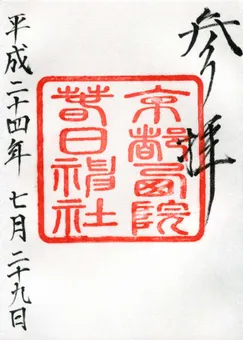 参拝
京都西院
春日神社
平成二十四年 七月二十九日